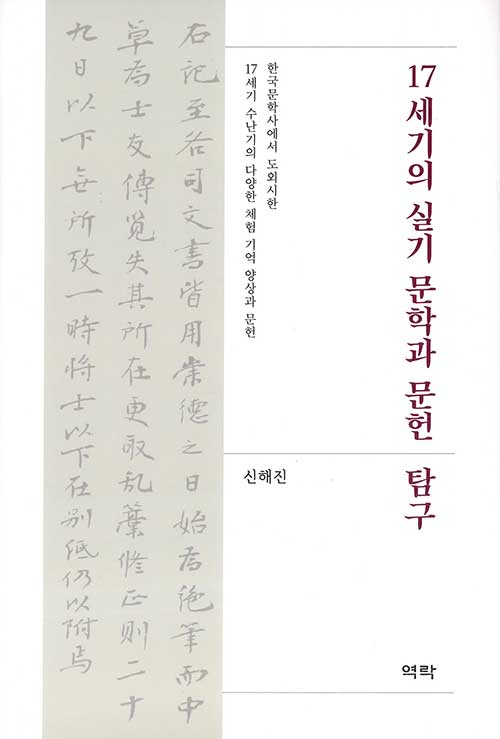 17세기의 실기 문학과 문헌 탐구
한국문학사에서 도외시한
17세기 수난기의 다양한 체험 기억 양상과 문헌
신해진
역락
右記至各司文書皆用崇德之日始爲絶筆而中
草爲士友傳覓失其所在更取乱藁修正則二十
九日以下無所攷一時將士以下在別低仍以附焉